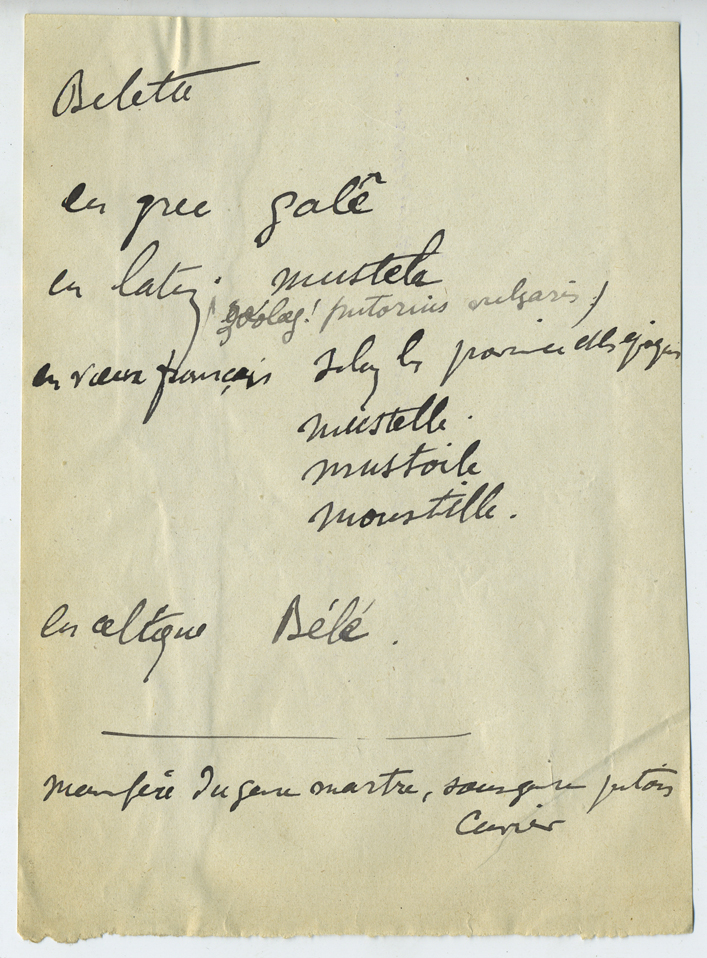 Belette
en grec galê
en latin mustela
(zoolog! putorius vulgaris)
en vieux français selon les provinces et les époques
mustelle.
mustoile
moustille.
en celtique Bélé.
mamifère du genre martre, sous genre putois
Cuvier